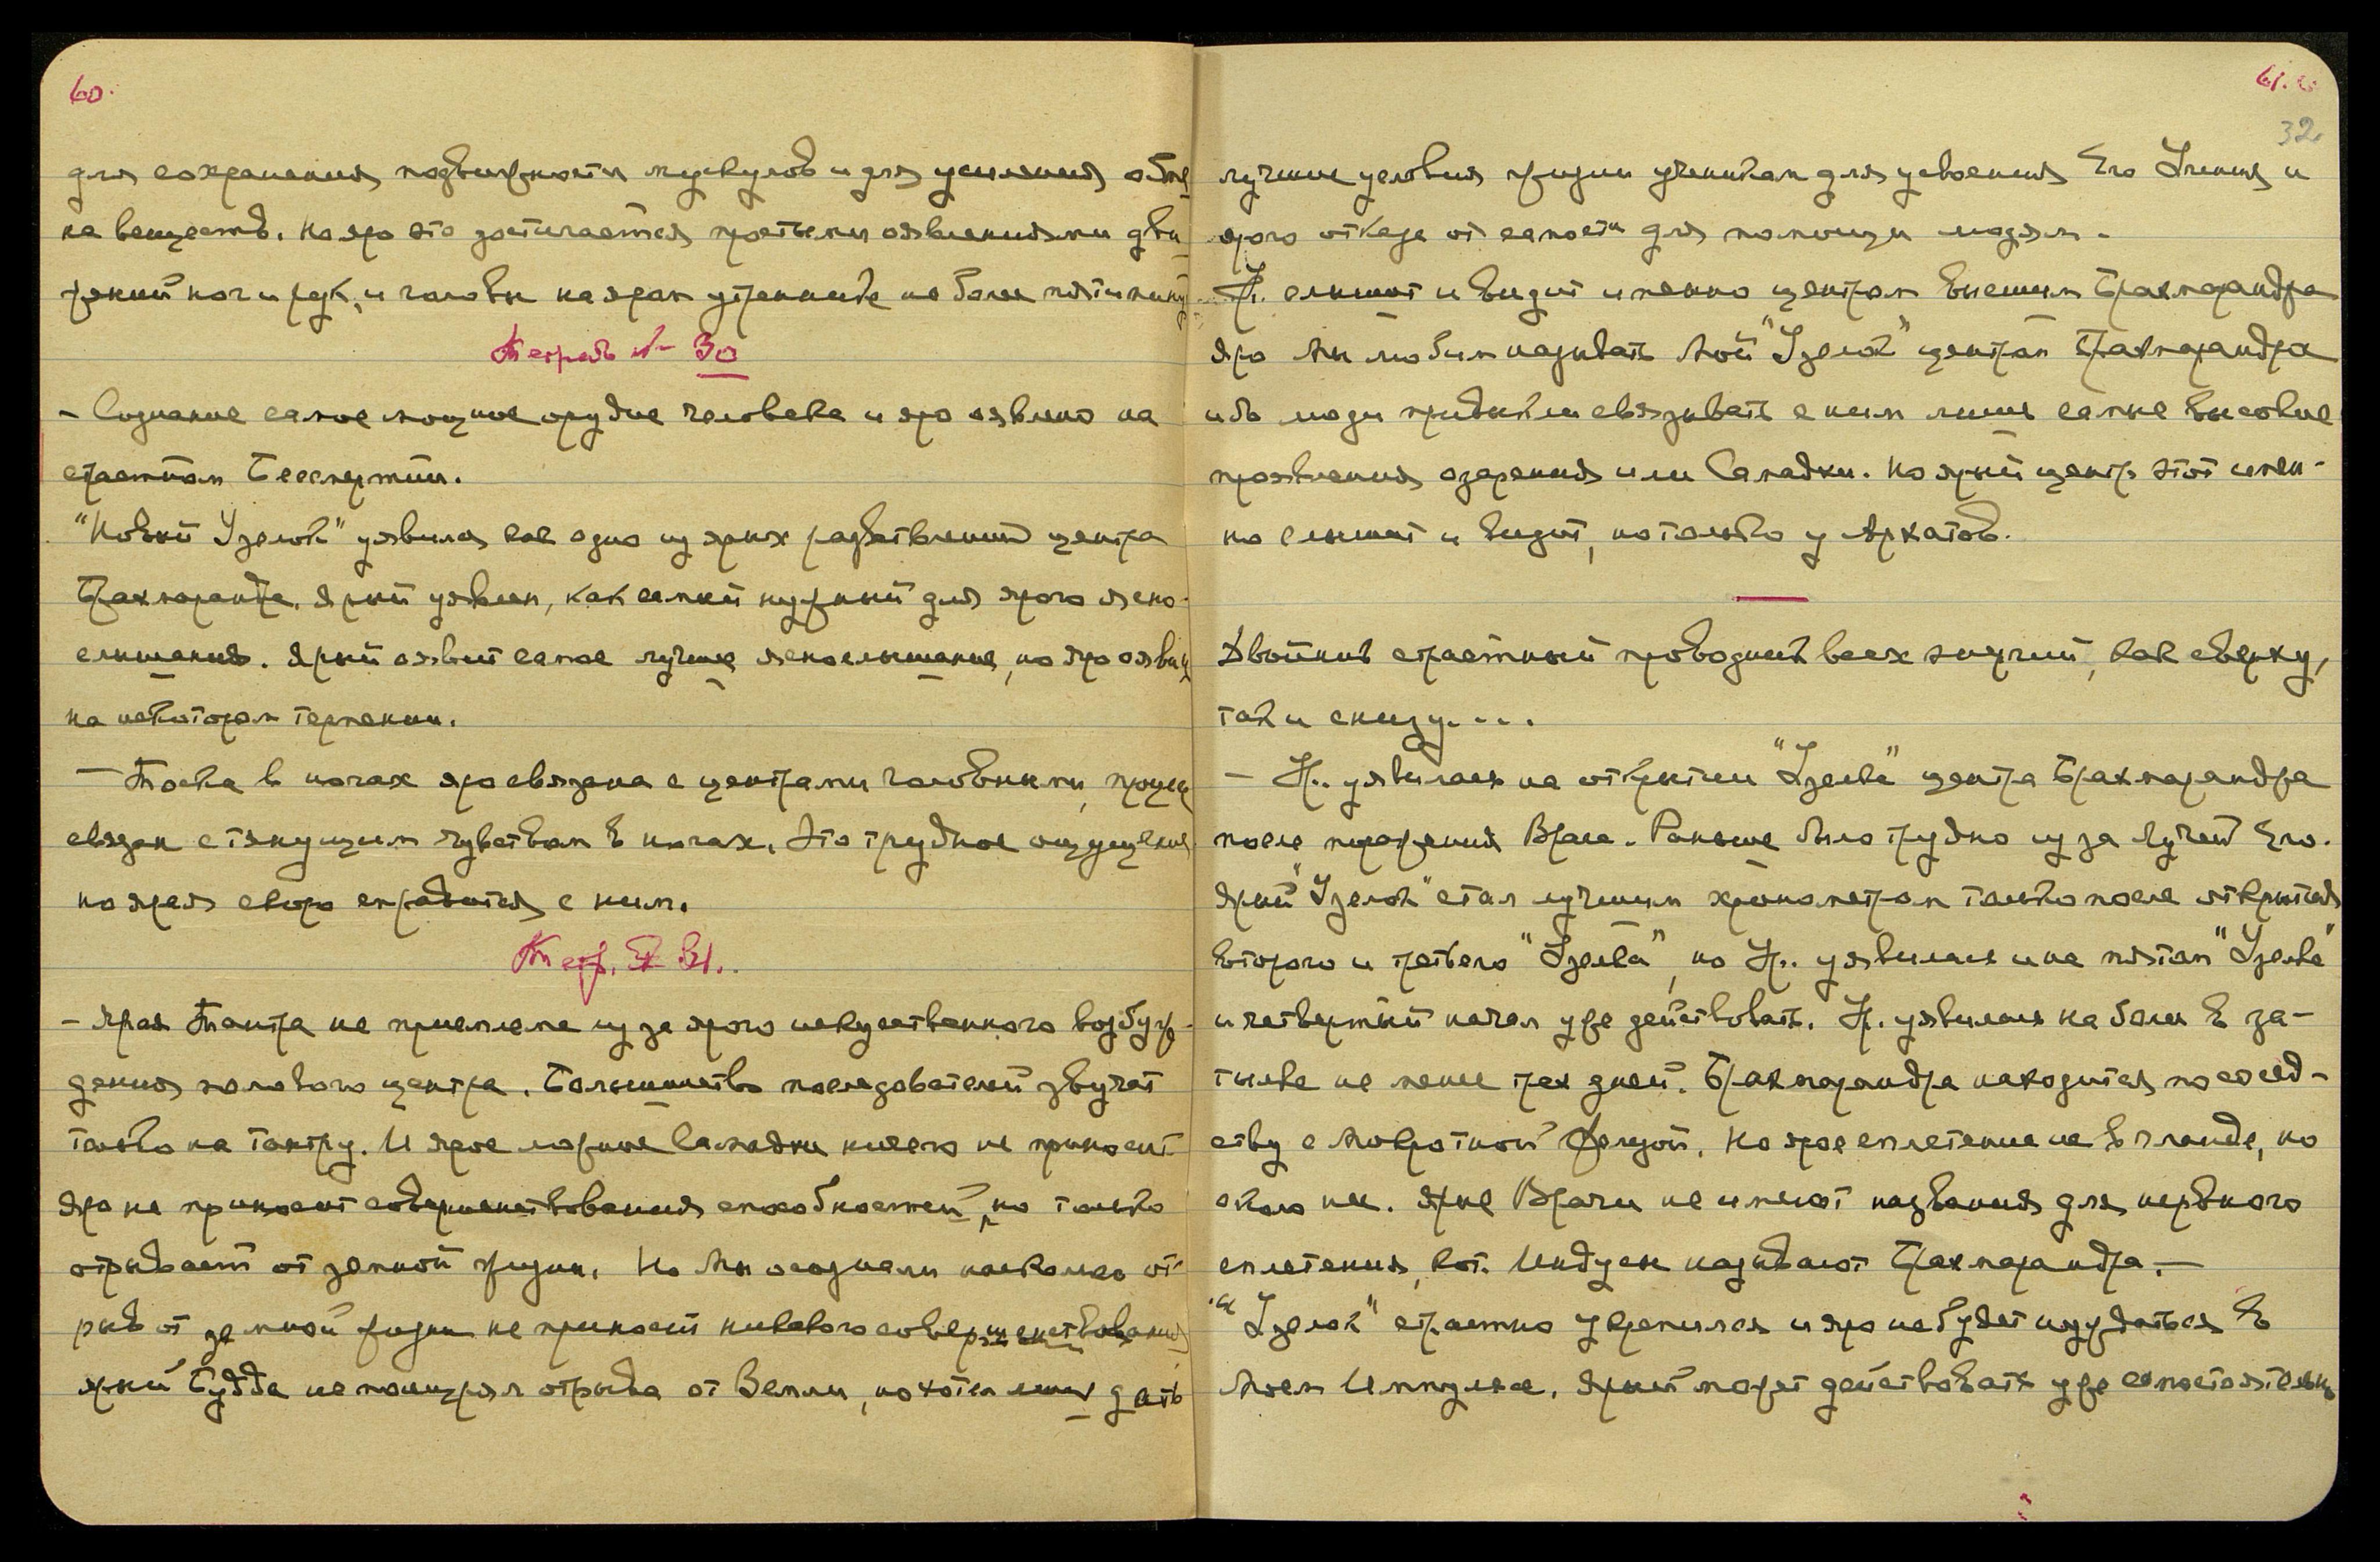 60.
для сохранения подвижности мускулов и для усиления обме
на веществ. Но яро это достигается простыми оявлениями дви
жений ног и рук, и головы на яром утреннике не более пяти минут
Тетрадь № 30
- Сознание самое мощное орудие человека и яро оявлено на
страстном Бессмертии.
"Новый Узелок" уявился как одно из ярых разветвлений центра
Брахмарандра. Ярый уявлен, как самый нужный для ярого ясно-
слышания. Ярый оявит самое лучшее яснослышание, но яро оявит
на некотором терпении.
- Тоска в ногах яро связана с центрами головными, процесс
связан с тянущим чувством в ногах. Это трудное ощущение
но ярая скоро справится с ним.
Тетр. № 31.
- Ярая Тантра не приемлема из за ярого искусственного возбуж-
дения полового центра. Большинство последователей звучат
только на тантру. И ярое ложное Самадхи ничего не приносит
яро не приносит совершенствования способностей, но только
отрывает от земной жизни. Но Мы осознали насколько от-
рыв от земной жизни не приносит никакого совершенствования
ярый Будда не поощрял отрыва от Земли, но хотел лишь дать
61.
32
лучшие условия жизни ученикам для усвоения Его Учения и
ярого отказа от самости для помощи людям.
- Ур. слышит и видит именно центром высшим Брахмарандра
Яро Мы любим называть Мой "Узелок" центром Брахмарандра
ибо люди привыкли связывать с ним лишь самые высокие
проявления озарения или Самадхи. Но ярый центр этот имен-
но слышит и видит, но только у Архатов.
Двойник страстный проводник всех энергий, как сверху,
так и снизу....
- Ур.. уявилась на открытии "Узелка" центра Брахмарандра
после поражения Врага. Раньше было трудно из за Лучей Его.
Ярый "Узелок" стал лучшим хронометром только после открытия
второго и третьего "Узелка", но Ур.. уявилась и на пятом "Узелке"
и четвертый начал уже действовать. Ур. уявилась на боли в за-
тылке не менее трех дней. Брахмарандра находится по сосед-
ству с Мокротной Железой. Но ярое сплетение не в гланде, но
около нее. Ярые Врачи не имеют названия для нервного
сплетения, кот. Индусы называют Брахмарандра. —
"Узелок" страстно укрепился и яро не будет нуждаться в
Моем Импульсе. Ярый может действовать уже самостоятельно